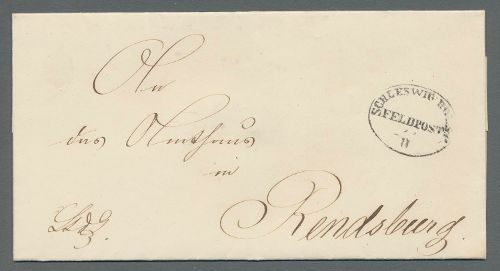 An
das Amthaus
in
Rendsburg.
SCHLESWIG HO
FELDPOST
II